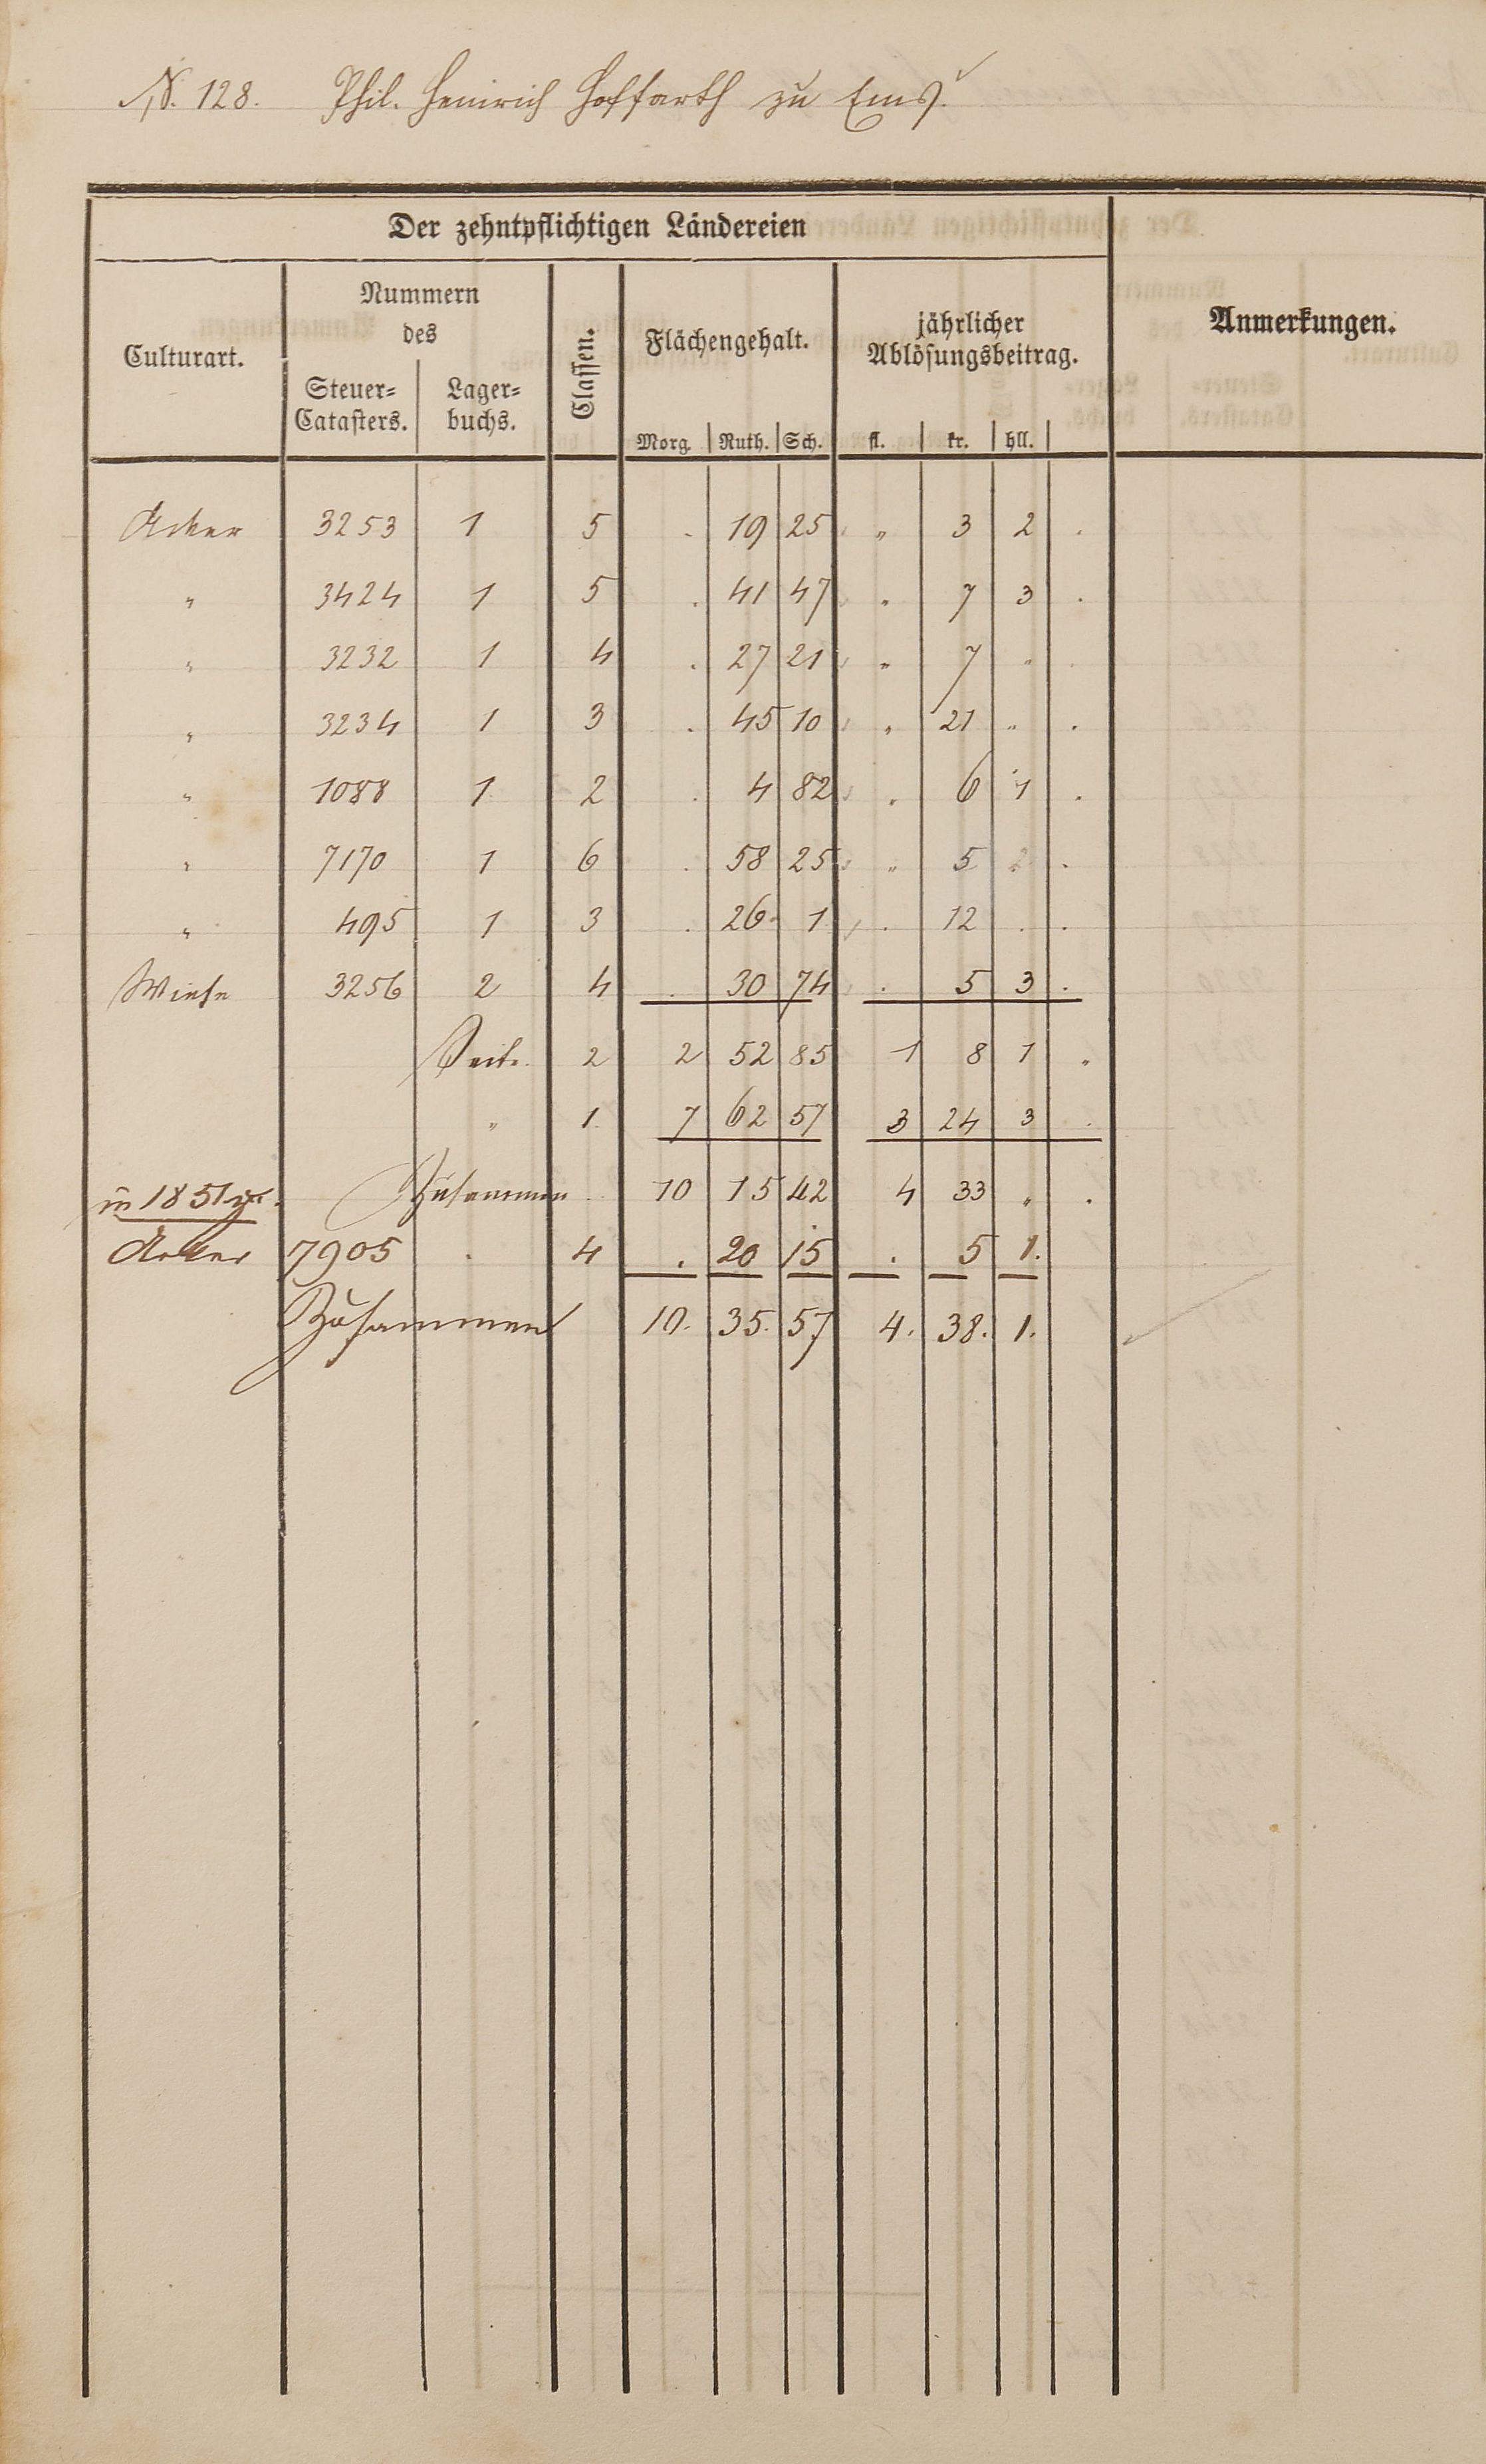 N. 128. Phil. Heinrich Hoffarth zu Ems.
Der zehntpflichtigen Ländereien
Culturart. Nummern des Steuer=Catasters. Lager=buchs. Classen. Flächengehalt. Morg. Ruth. Sch. jährlicher Ablösungsbeitrag. fl. kr. hll. Anmerkungen.
Acker 3253 1 5 . 19 25 " 3 2 .
" 3424 1 5 . 41 47 " 7 3 .
" 3232 1 4 . 27 21 " 7 " .
" 3234 1 3 . 45 10 " 21 " .
" 1088 1 2 . 4 82 . 6 1 .
" 7170 1 6 . 58 25 " 5 2 .
" 495 1 3 . 26 1 . 12 . .
Wiese 3256 2 4 . 30 74 . 5 3 .
Seite 2 2 52 85 1 8 1 "
" 1. 7 62 57 3 24 3 .
Zusammen 10 15 42 4 33 " .
in 1851
Acker 7905 . 4 . 20 15 . 5 1.
Zusammen 10. 35. 57 4. 38. 1.